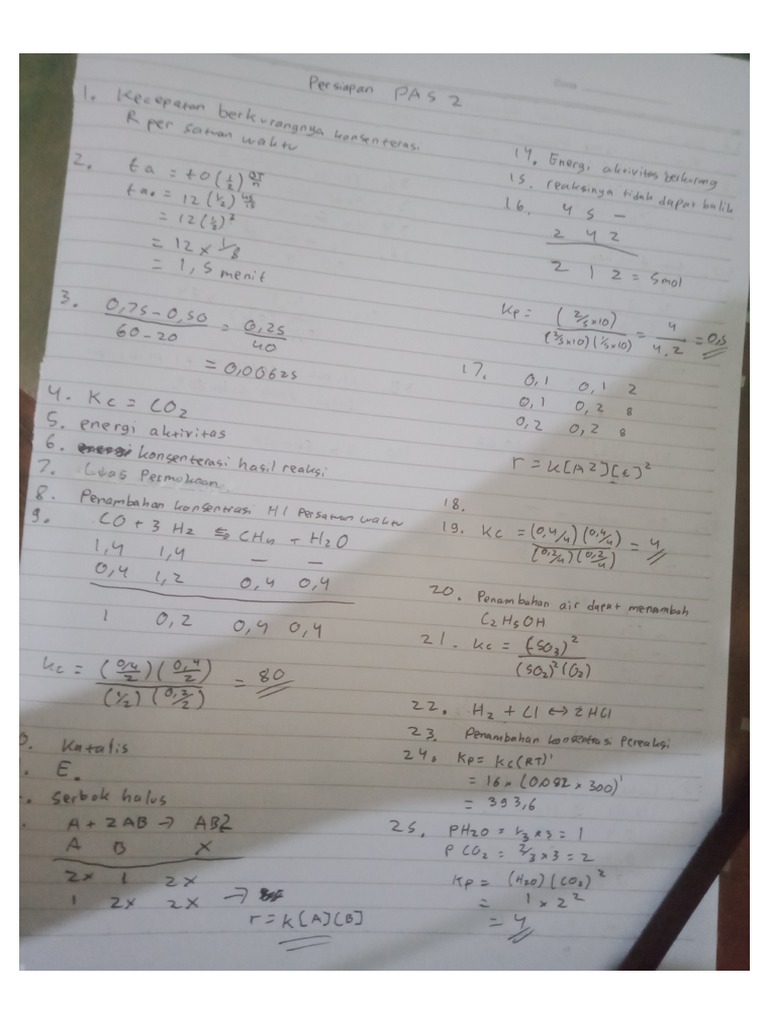 Persiapan PAS 2
1. Kecepatan berkurangnya konsenterasi
R per satuan waktu
2. ta = t0 (1/2)
ta = 12 (1/2)
= 12 (1/2)³
= 12 x 1/8
= 1,5 menit
3. 0,75 - 0,50 / 60 - 20 = 0,25 / 40
= 0,00625
4. Kc = CO2
5. energi aktivitas
6. konsenterasi hasil reaksi
7. Luas Permukaan
8. Penambahan konsentrasi HI Persatuan waktu
9. CO + 3 H2 ⇆ CH4 + H2O
1,4 1,4 - -
0,4 1,2 0,4 0,4
1 0,2 0,4 0,4
Kc = (0,4/2) (0,4/2) / (1/2) (0,2/2) = 80
Katalis
E.
Serbok halus
A + 2AB → AB2
A B X
2x 1 2x
1 2x 2x →
r = K [A] [B]
14. Energi aktivitas berkurang
15. reaksinya tidak dapat balik
16. 4 5 -
2 4 2
2 1 2 = 5 mol
Kp = (2/5 x 10) / (2/5 x 10) (1/5 x 10) = 4 / 4.2 = 0,5
17. 0,1 0,1 2
0,1 0,2 8
0,2 0,2 8
18.
19. Kc = (0,4/4) (0,4/4) / (0,2/4) (0,2/4) = 4
20. Penambahan air dapat menambah
C2H5OH
21. Kc = (SO3)² / (SO2)² (O2)
22. H2 + Cl ↔ 2HCl
23. Penambahan konsentrasi Pereaksi
24. Kp = Kc (RT)¹
= 16 x (0,082 x 300)¹
= 393,6
25. PH2O = 1/3 x 3 = 1
P CO2 = 2/3 x 3 = 2
Kp = (H2O) (CO2)²
= 1 x 2²
= 4